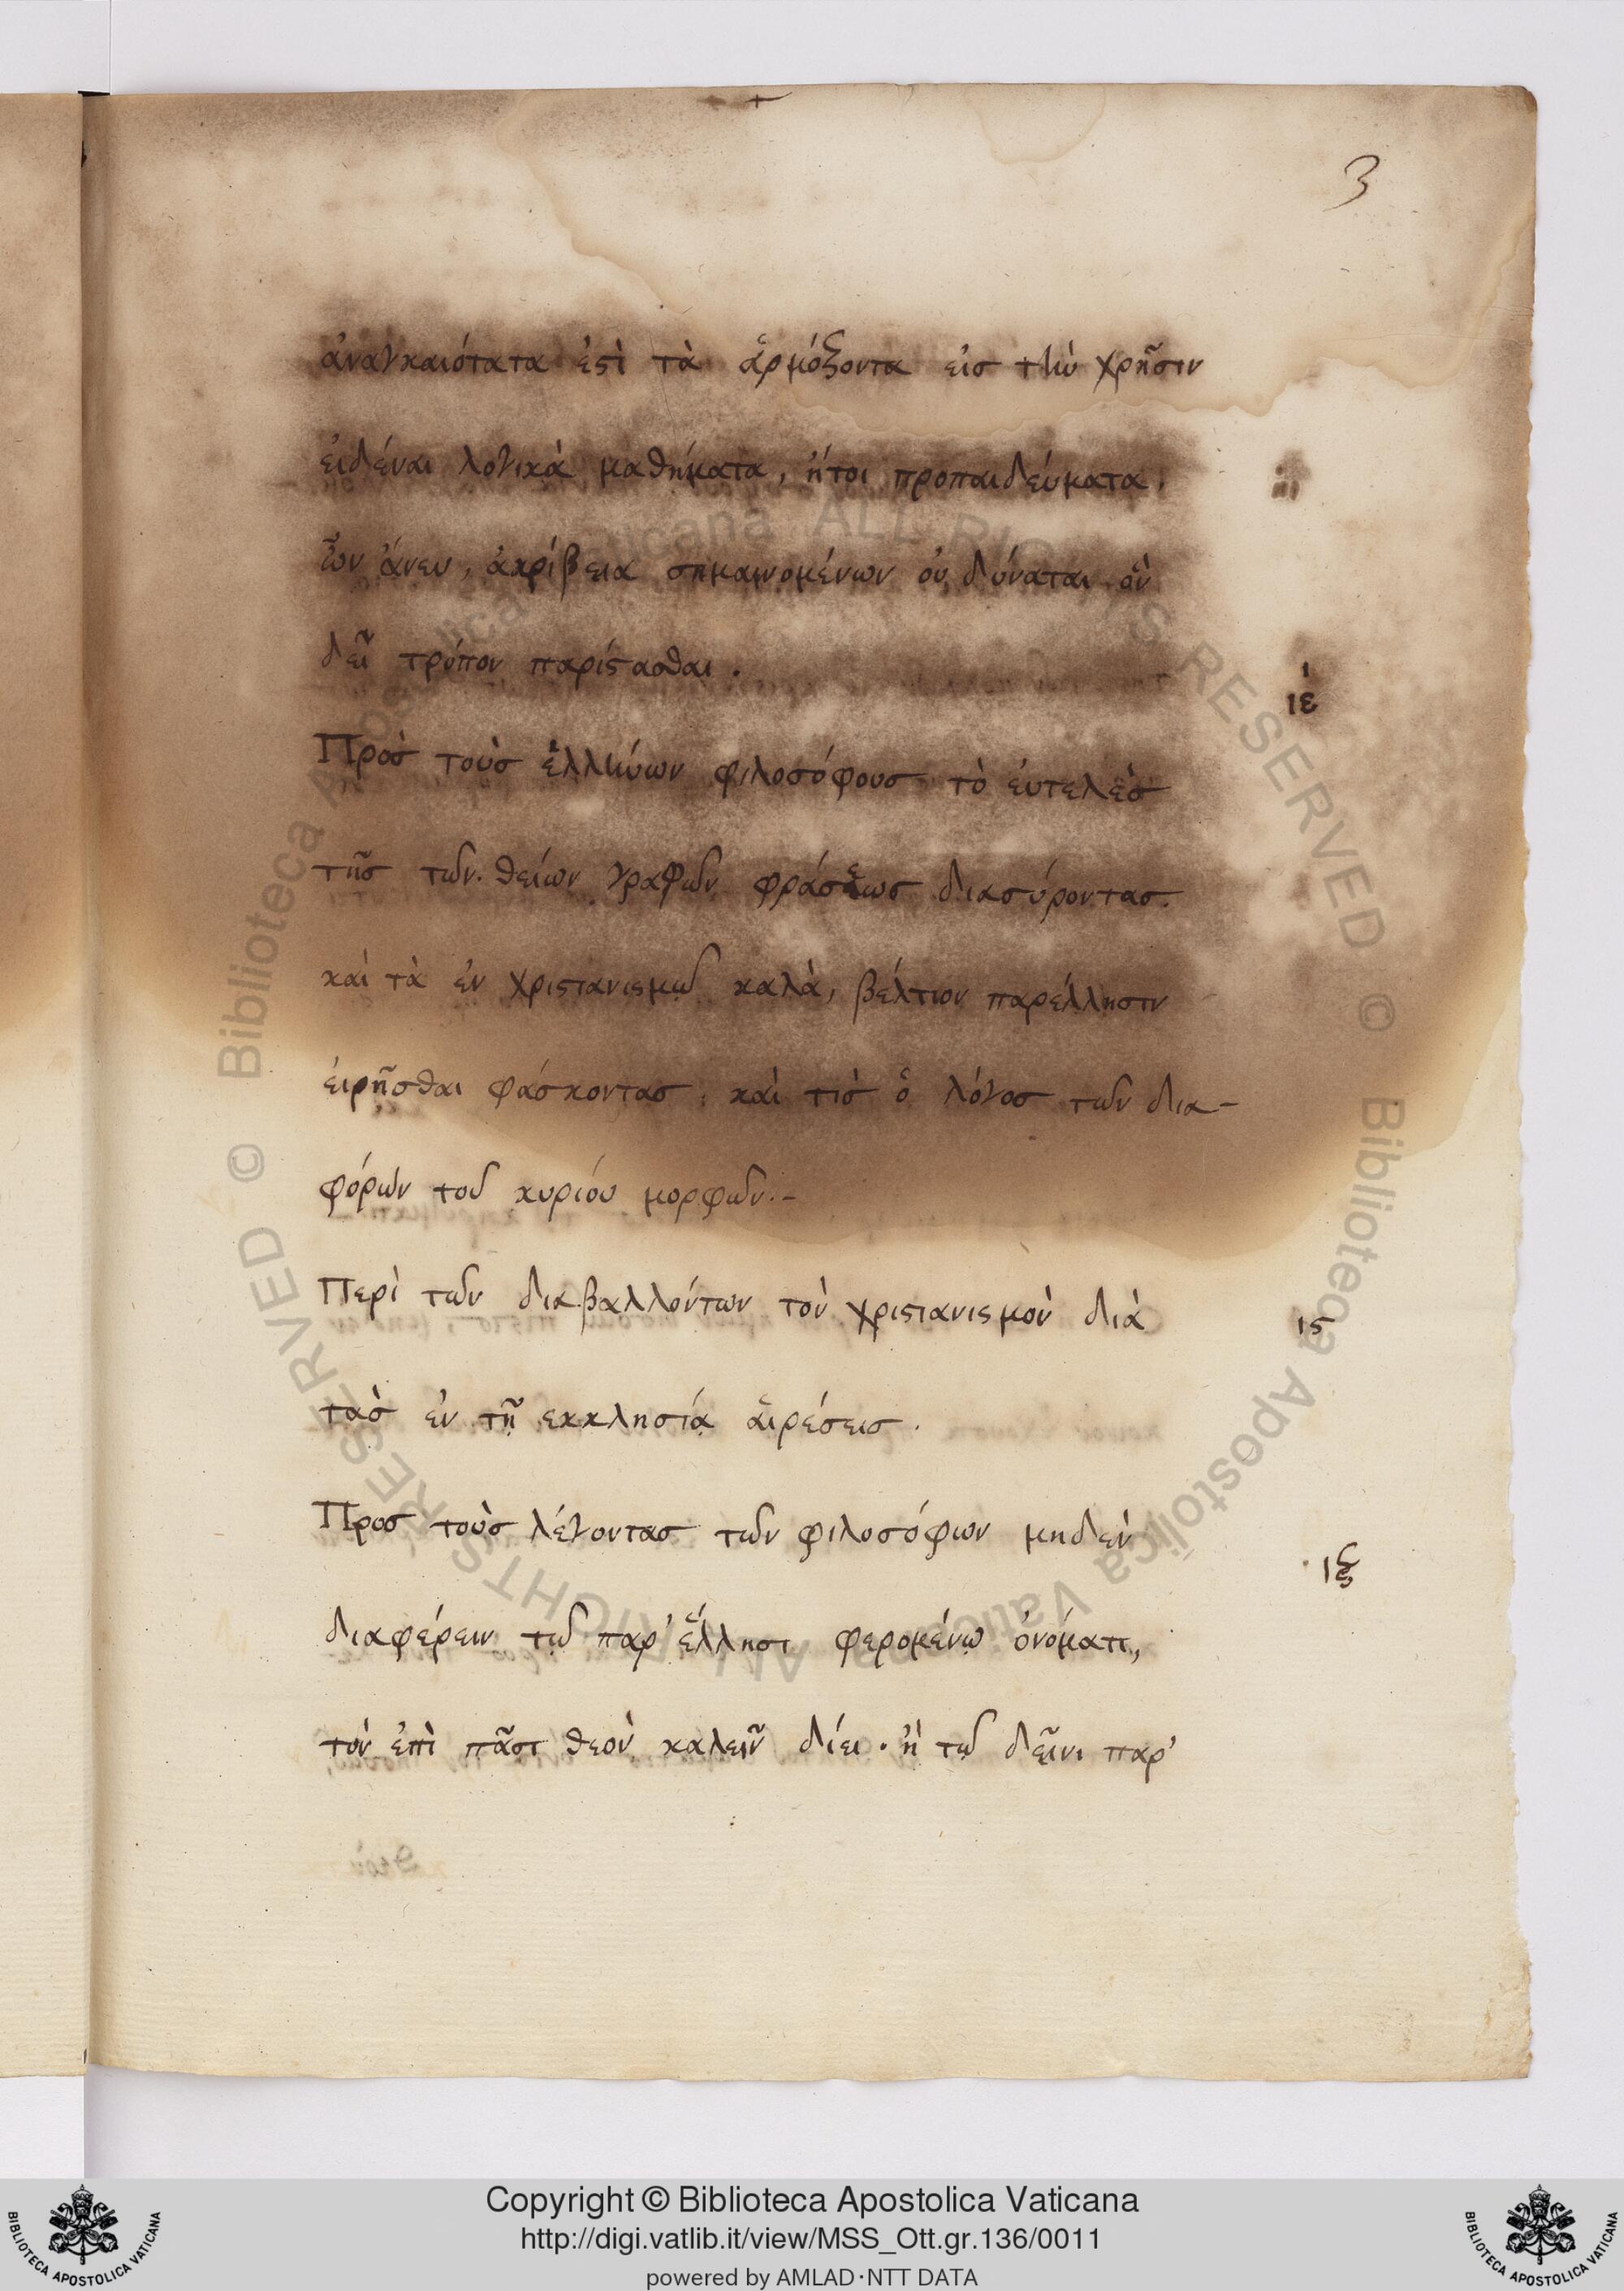 3
ἀναγκαιότατα ἐϛὶ τὰ ἁρμόζοντα εἰσ τὴν χρῆσιν
ἐιδέναι λογικὰ μαθήματα, ἤτοι προπαιδεύματα.
ὧν ἄνευ, ἀκρίβεια σημαινομένων οὐ δύναται ὃν
δεῖ τρόπον παρίϛασθαι.
ιέ
Πρὸσ τοὺσ ἑλλήνων φιλοσόφουσ τὸ ἐυτελὲσ
τῆσ τῶν θείων γραφῶν φράσεωσ διασύροντασ.
καὶ τὰ ἐν χριϛιανισμῷ καλὰ, βέλτιον παρέλλησιν
ἐιρῆσθαι φάσκοντασ. καὶ τὶσ ὁ λόγοσ τῶν δια-
φόρων τοῦ κυρίου μορφῶν.-
Περὶ τῶν διαβαλλόντων τὸν χριϛιανισμὸν διὰ
ιϛ
τὰσ ἐν τῇ εκκλησίᾳ ἁιρέσεισ.
Προσ τοὺσ λέγοντασ τῶν φιλοσόφων μηδὲν
ιξ
διαφέρειν τῷ παρ' ἕλλησι φερομένῳ ὀνόματι,
τὸν ἐπὶ πᾶσι θεὸν καλεῖν δίει. ἢ τῷ δεῖνι παρ'
Copyright © Biblioteca Apostolica Vaticana
http://digi.vatlib.it/view/MSS_Ott.gr.136/0011
powered by AMLAD·NTT DATA
BIBLIOTECA APOSTOLICA VATICANA
BIBLIOTECA APOSTOLICA VATICANA
© Biblioteca Apostolica Vaticana ALL RIGHTS RESERVED © Biblioteca Apostolica Vaticana ALL RIGHTS RESERVED